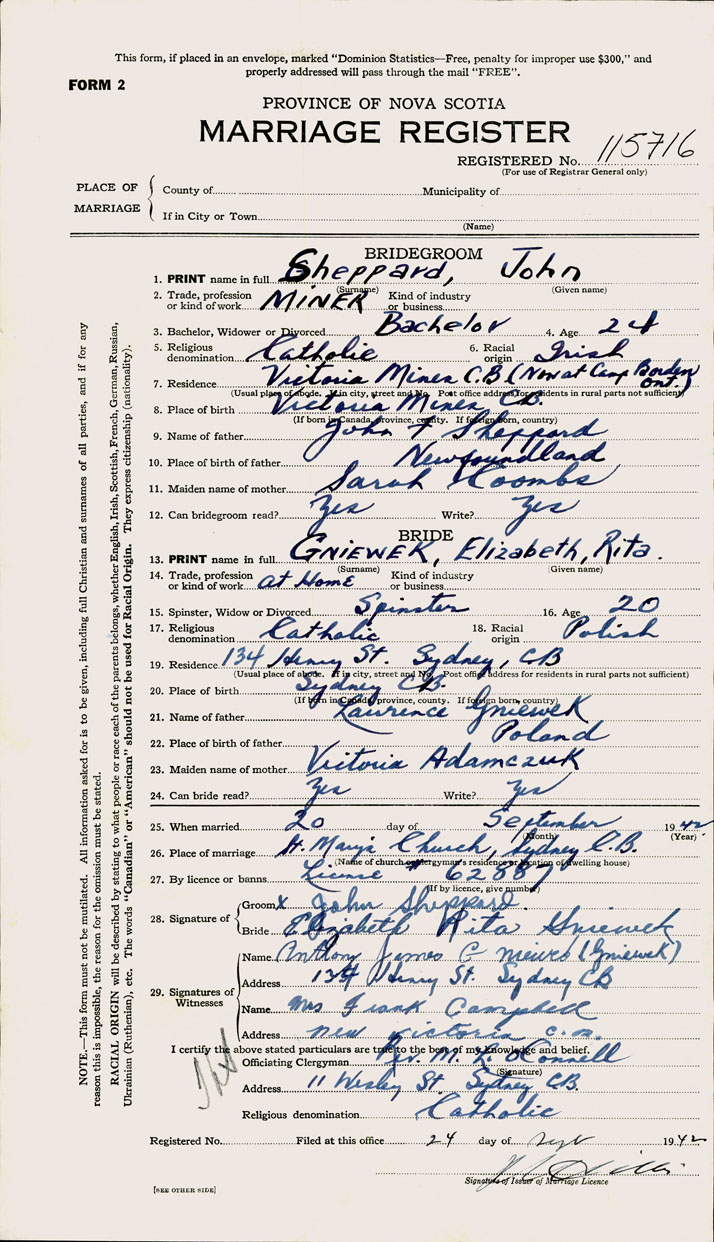 This form, if placed in an envelope, marked “Dominion Statistics—Free, penalty for improper use $300,” and
properly addressed will pass through the mail “FREE”.
FORM 2
PROVINCE OF NOVA SCOTIA
MARRIAGE REGISTER
REGISTERED No. 115716
(For use of Registrar General only)
PLACE OF MARRIAGE
County of Municipality of
If in City or Town
(Name)
BRIDEGROOM
1. PRINT name in full Sheppard, John
(Surname) (Given name)
2. Trade, profession or kind of work MINER Kind of industry or business
3. Bachelor, Widower or Divorced Bachelor 4. Age 24
5. Religious denomination Catholic 6. Racial origin Irish
7. Residence Victoria Mines C.B. (Now at Camp Borden Ont.)
(Usual place of abode. If in city, street and No. Post office address for residents in rural parts not sufficient)
8. Place of birth Victoria Mines CB.
(If born in Canada, province, county. If foreign born, country)
9. Name of father John F Sheppard
10. Place of birth of father Newfoundland
11. Maiden name of mother Sarah Coombs
12. Can bridegroom read? Yes Write? Yes
BRIDE
13. PRINT name in full GNIEWEK, Elizabeth, Rita.
(Surname) (Given name)
14. Trade, profession or kind of work at Home Kind of industry or business
15. Spinster, Widow or Divorced Spinster 16. Age 20
17. Religious denomination Catholic 18. Racial origin Polish
19. Residence 134 Henry St. Sydney, CB
(Usual place of abode. If in city, street and No. Post office address for residents in rural parts not sufficient)
20. Place of birth Sydney CB.
(If born in Canada province, county. If foreign born, country)
21. Name of father Lawrence Gniewek
22. Place of birth of father Poland
23. Maiden name of mother Victoria Adamczuk
24. Can bride read? Yes Write? Yes
25. When married 20 day of September 1942
(Month) (Year)
26. Place of marriage St. Marys Church, Sydney C.B.
(Name of church or clergyman's residence or location of dwelling house)
27. By licence or banns License # 62887
(If by licence, give number)
28. Signature of
Groom X John Sheppard.
Bride Elizabeth Rita Gniewek
29. Signatures of Witnesses
Name Anthony James (Gniewek)
Address 134 Henry St. Sydney CB
Name Mrs Frank Campbell
Address New Victoria
I certify the above stated particulars are true to the best of my knowledge and belief.
Officiating Clergyman M. O'Connell
(Signature)
Address 11 Wesley St. Sydney CB.
Religious denomination Catholic
Registered No. Filed at this office 24 day of 1942
Signature of Issuer of Marriage Licence
[SEE OTHER SIDE]
NOTE.—This form must not be mutilated. All information asked for is to be given, including full Christian and surnames of all parties, and if for any
reason this is impossible, the reason for the omission must be stated.
RACIAL ORIGIN will be described by stating to what people or race each of the parents belongs, whether English, Irish, Scottish, French, German, Russian,
Ukrainian (Ruthenian), etc. The words “Canadian” or “American” should not be used for Racial Origin. They express citizenship (nationality).